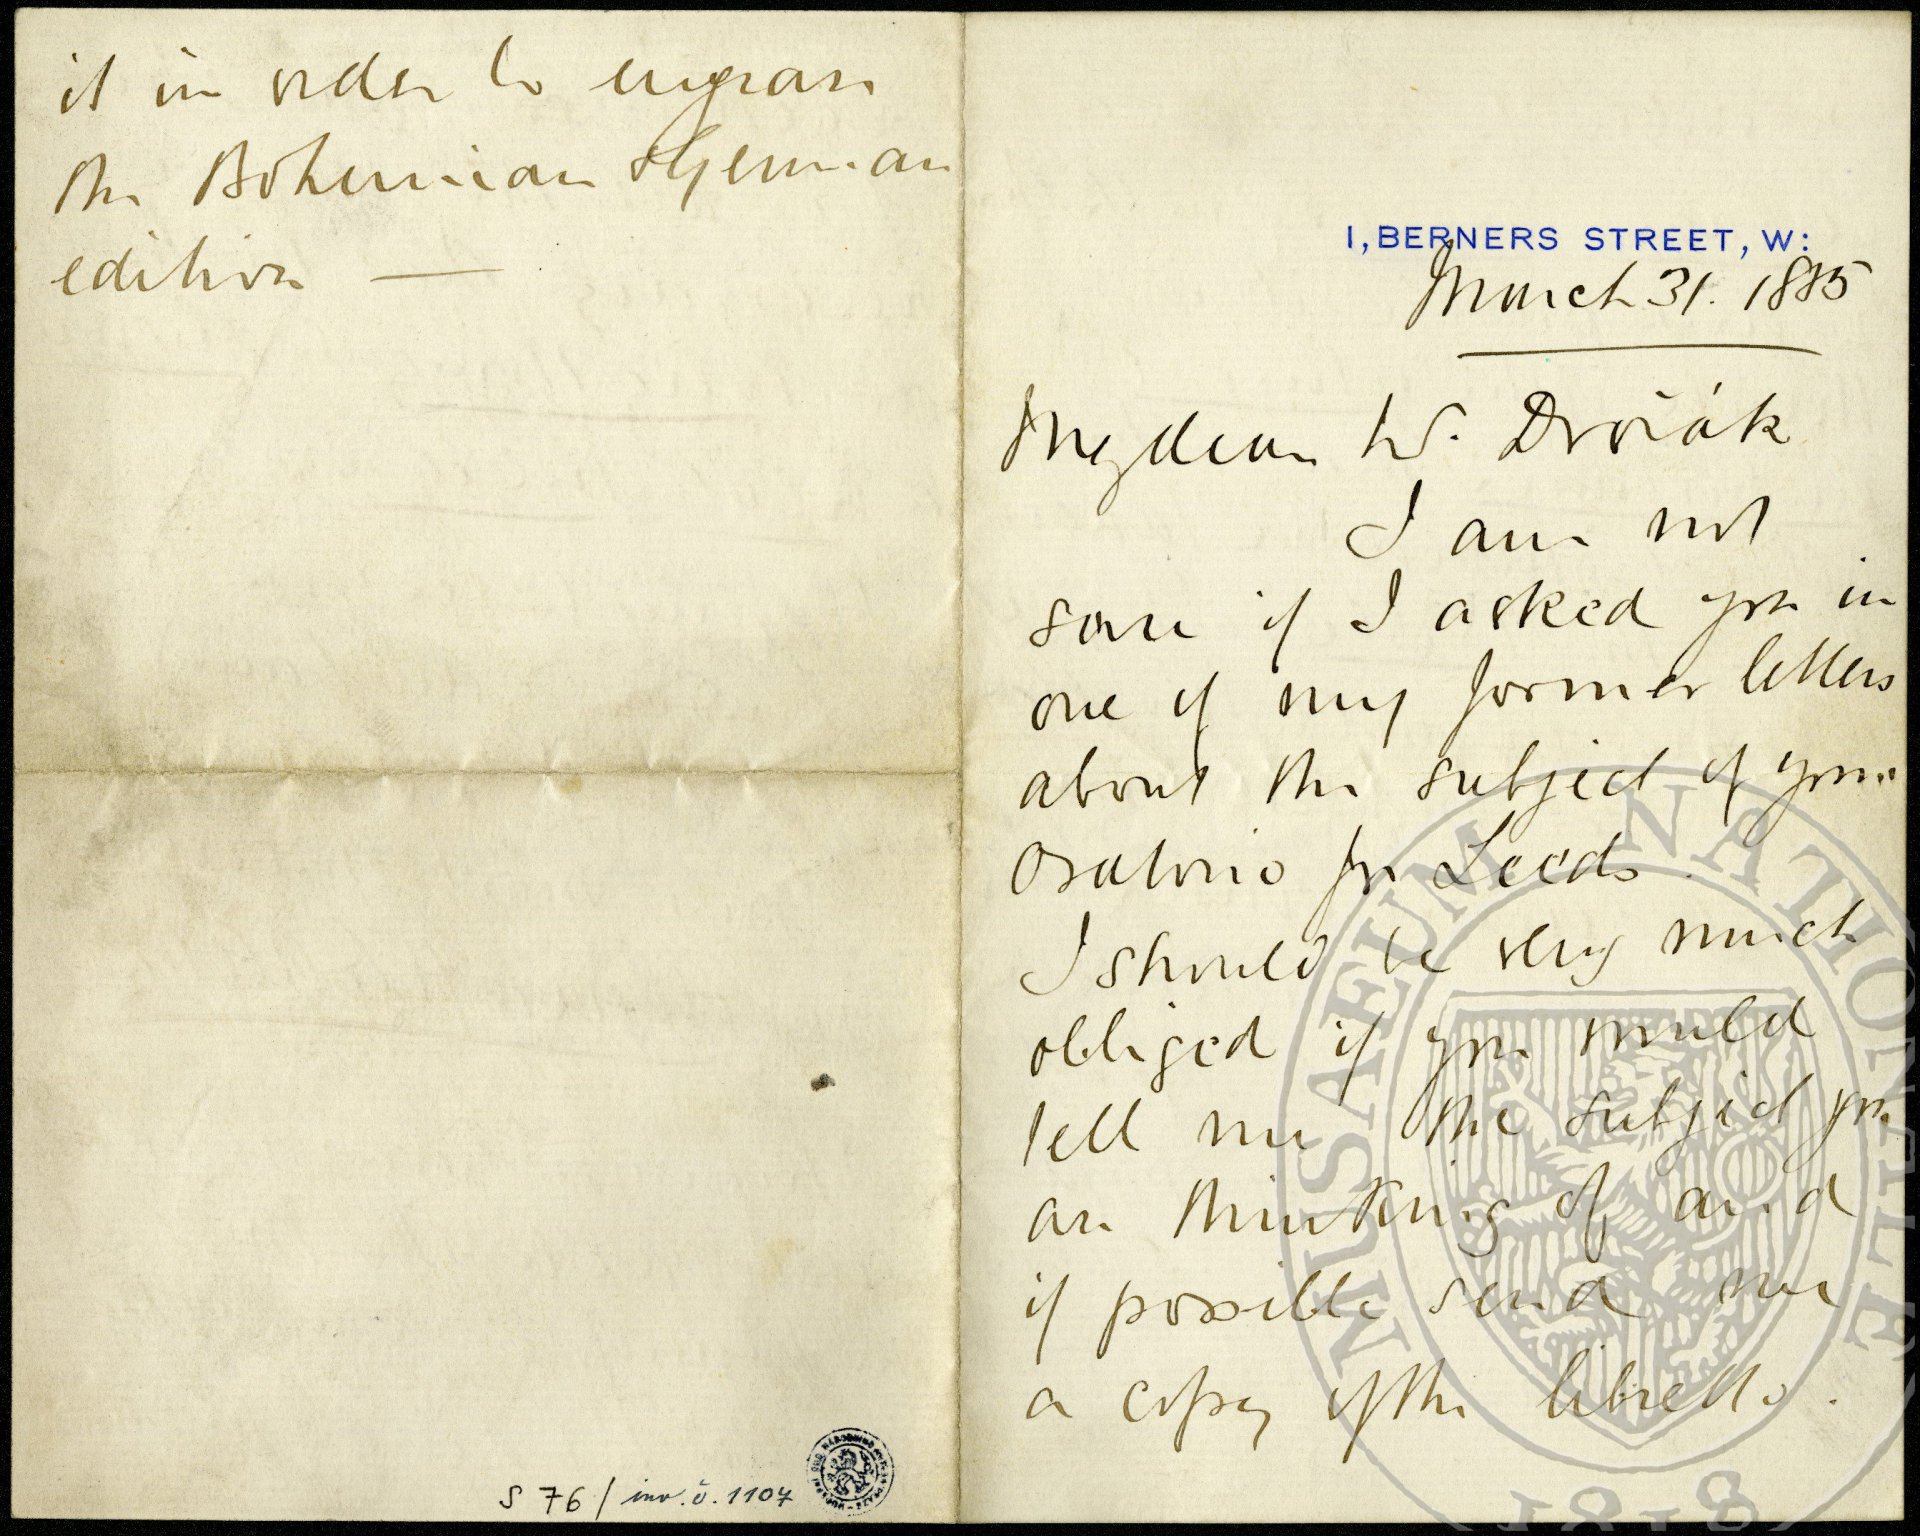 it in order to engrave
the Bohemian & German
edition —
S 76 / inv. č. 1107
1, BERNERS STREET, W:
March 31. 1885
My dear Mr. Dvořák
I am not
sure if I asked you in
one of my former letters
about the subject of your
Oratorio for Leeds.
I should be very much
obliged if you would
tell me the subject you
are thinking of and
if possible send me
a copy of the libretto.
MUSAEUM NATIONALE
1818